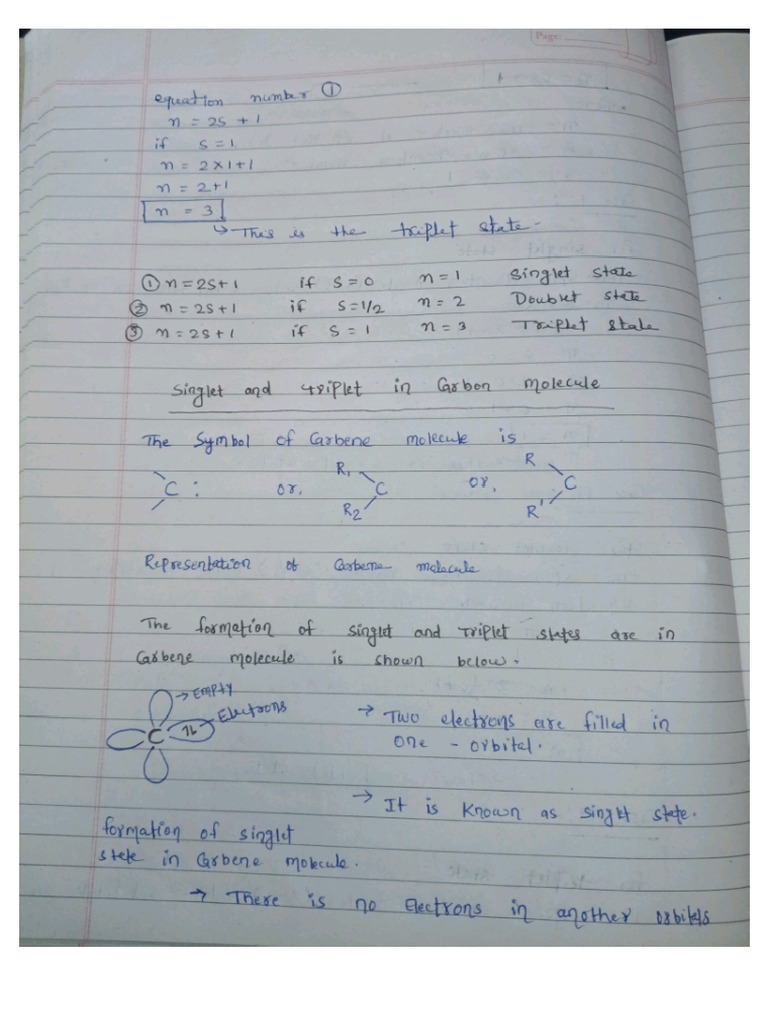 Page:
equation number ①
n = 2S + 1
if S = 1
n = 2 × 1 + 1
n = 2 + 1
n = 3
↳ This is the triplet state -
① n = 2S + 1 if S = 0 n = 1 Singlet state
② n = 2S + 1 if S = 1/2 n = 2 Doublet state
③ n = 2S + 1 if S = 1 n = 3 Triplet state
Singlet and triplet in Carbon molecule
The Symbol of Carbene molecule is
C : or, R₁ R₂ C or, R R' C
Representation of Carbene molecule
The formation of singlet and Triplet states are in
Carbene molecule is shown below.
→ EMPTY
Electrons
C 1l
→ Two electrons are filled in
one - orbital.
→ It is known as singlet state.
formation of singlet
state in Carbene molecule.
→ There is no Electrons in another orbitals